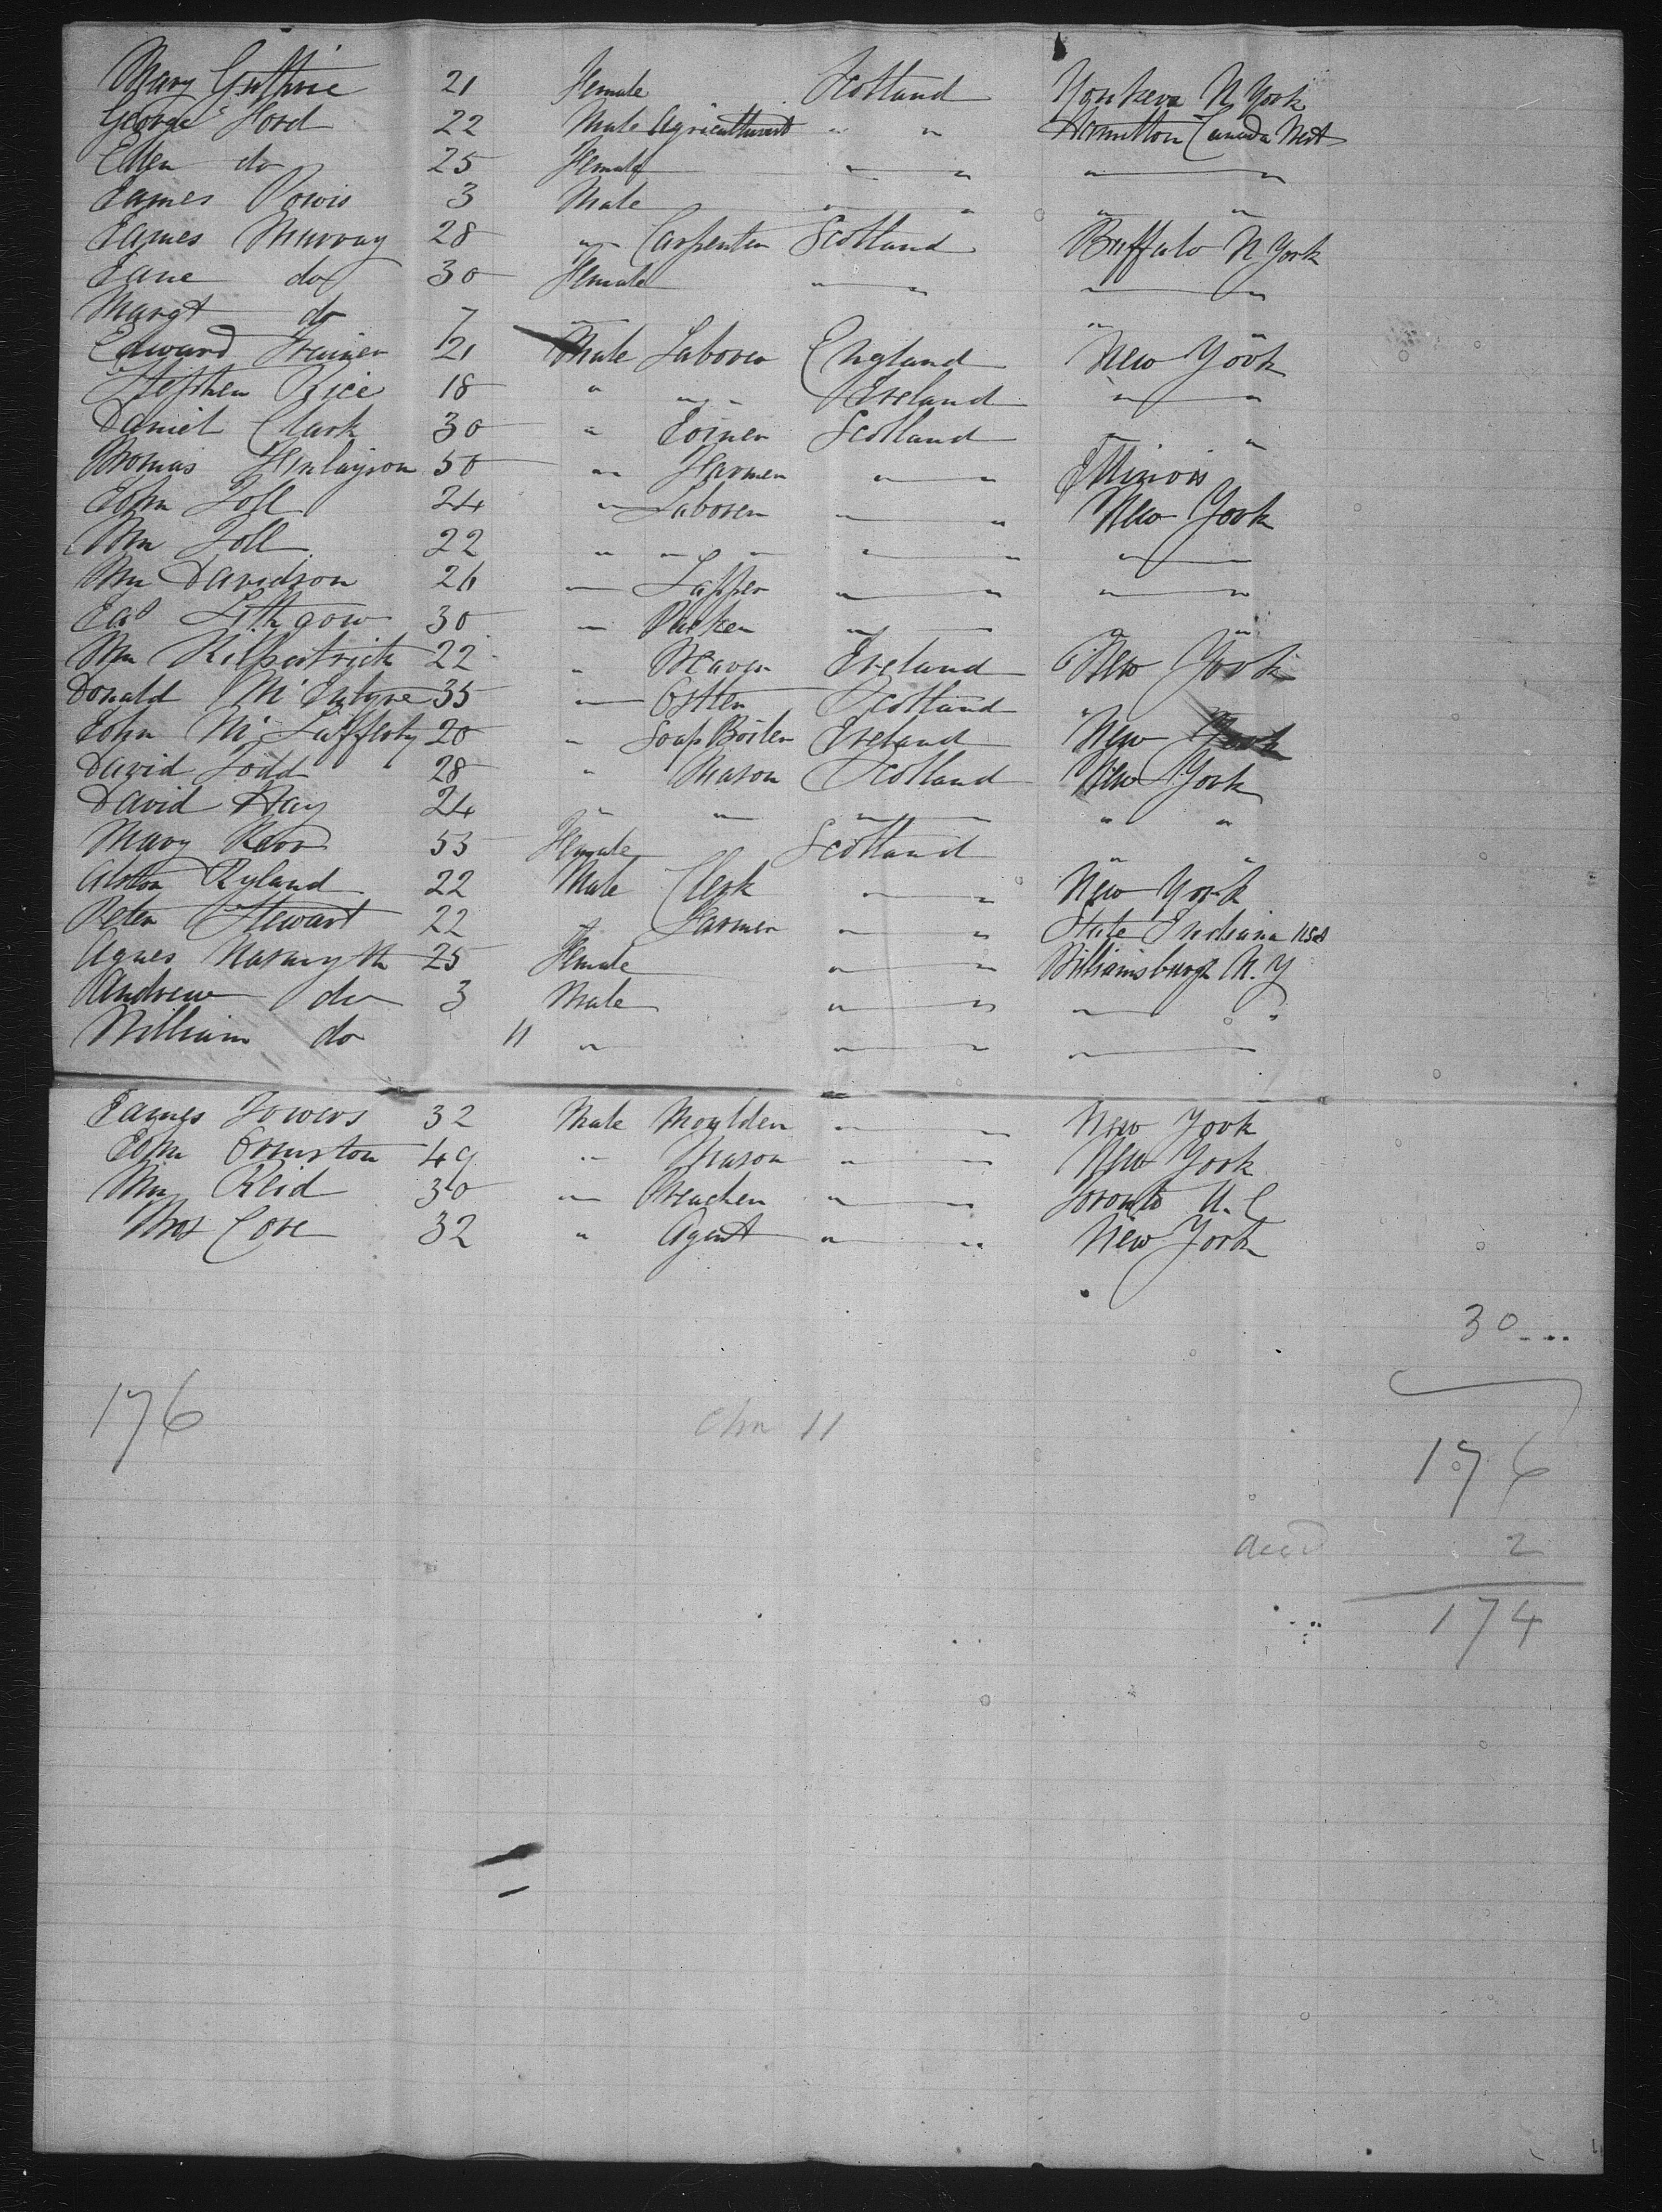 Mary Guthrie 21 Female Scotland Yonkers N York
George Ford 22 Male Agriculturist " " Hamilton Canada West
Ellen do 25 Female " " " "
James Powis 3 Male " " " "
James Murray 28 " Carpenter Scotland Buffalo N York
Jane do 30 Female " " " "
Margt do 7 " "
Edward Trainer 21 Male Laborer England New York
Stephen Rice 18 " " " Ireland " "
Daniel Clark 30 " Joiner Scotland " "
Thomas Finlayson 50 " Farmer " " Illinois
John Toll 24 " Laborer " " New York
Wm Toll 22 " " " " " " "
Wm Davidson 26 " Lapper " " " "
Jas Lithgow 30 " " " " "
Wm Kilpatrick 22 " Weaver Ireland New York
Donald McIntyre 35 " Ostler Scotland "
John Mc 20 " Soap Boiler Ireland New York
David Todd 28 " Mason Scotland New York
David Hay 24 " " " " " "
Mary Kerr 55 Female Scotland " "
Alston Ryland 22 Male Clerk " " New York
Peter Stewart 22 " Farmer " " State Indiana USA
Agnes Nasmyth 25 Female " " Williamsburgh N.Y
Andrew do 3 Male " " " "
William do 11 " " " " "
James Towers 32 Male Moulder " " New York
John Ormiston 49 " Mason " " New York
Wm Reid 30 " Preacher " " Toronto U.C
Thos Core 32 " Agent " " New York
30
176 11
176
2
174